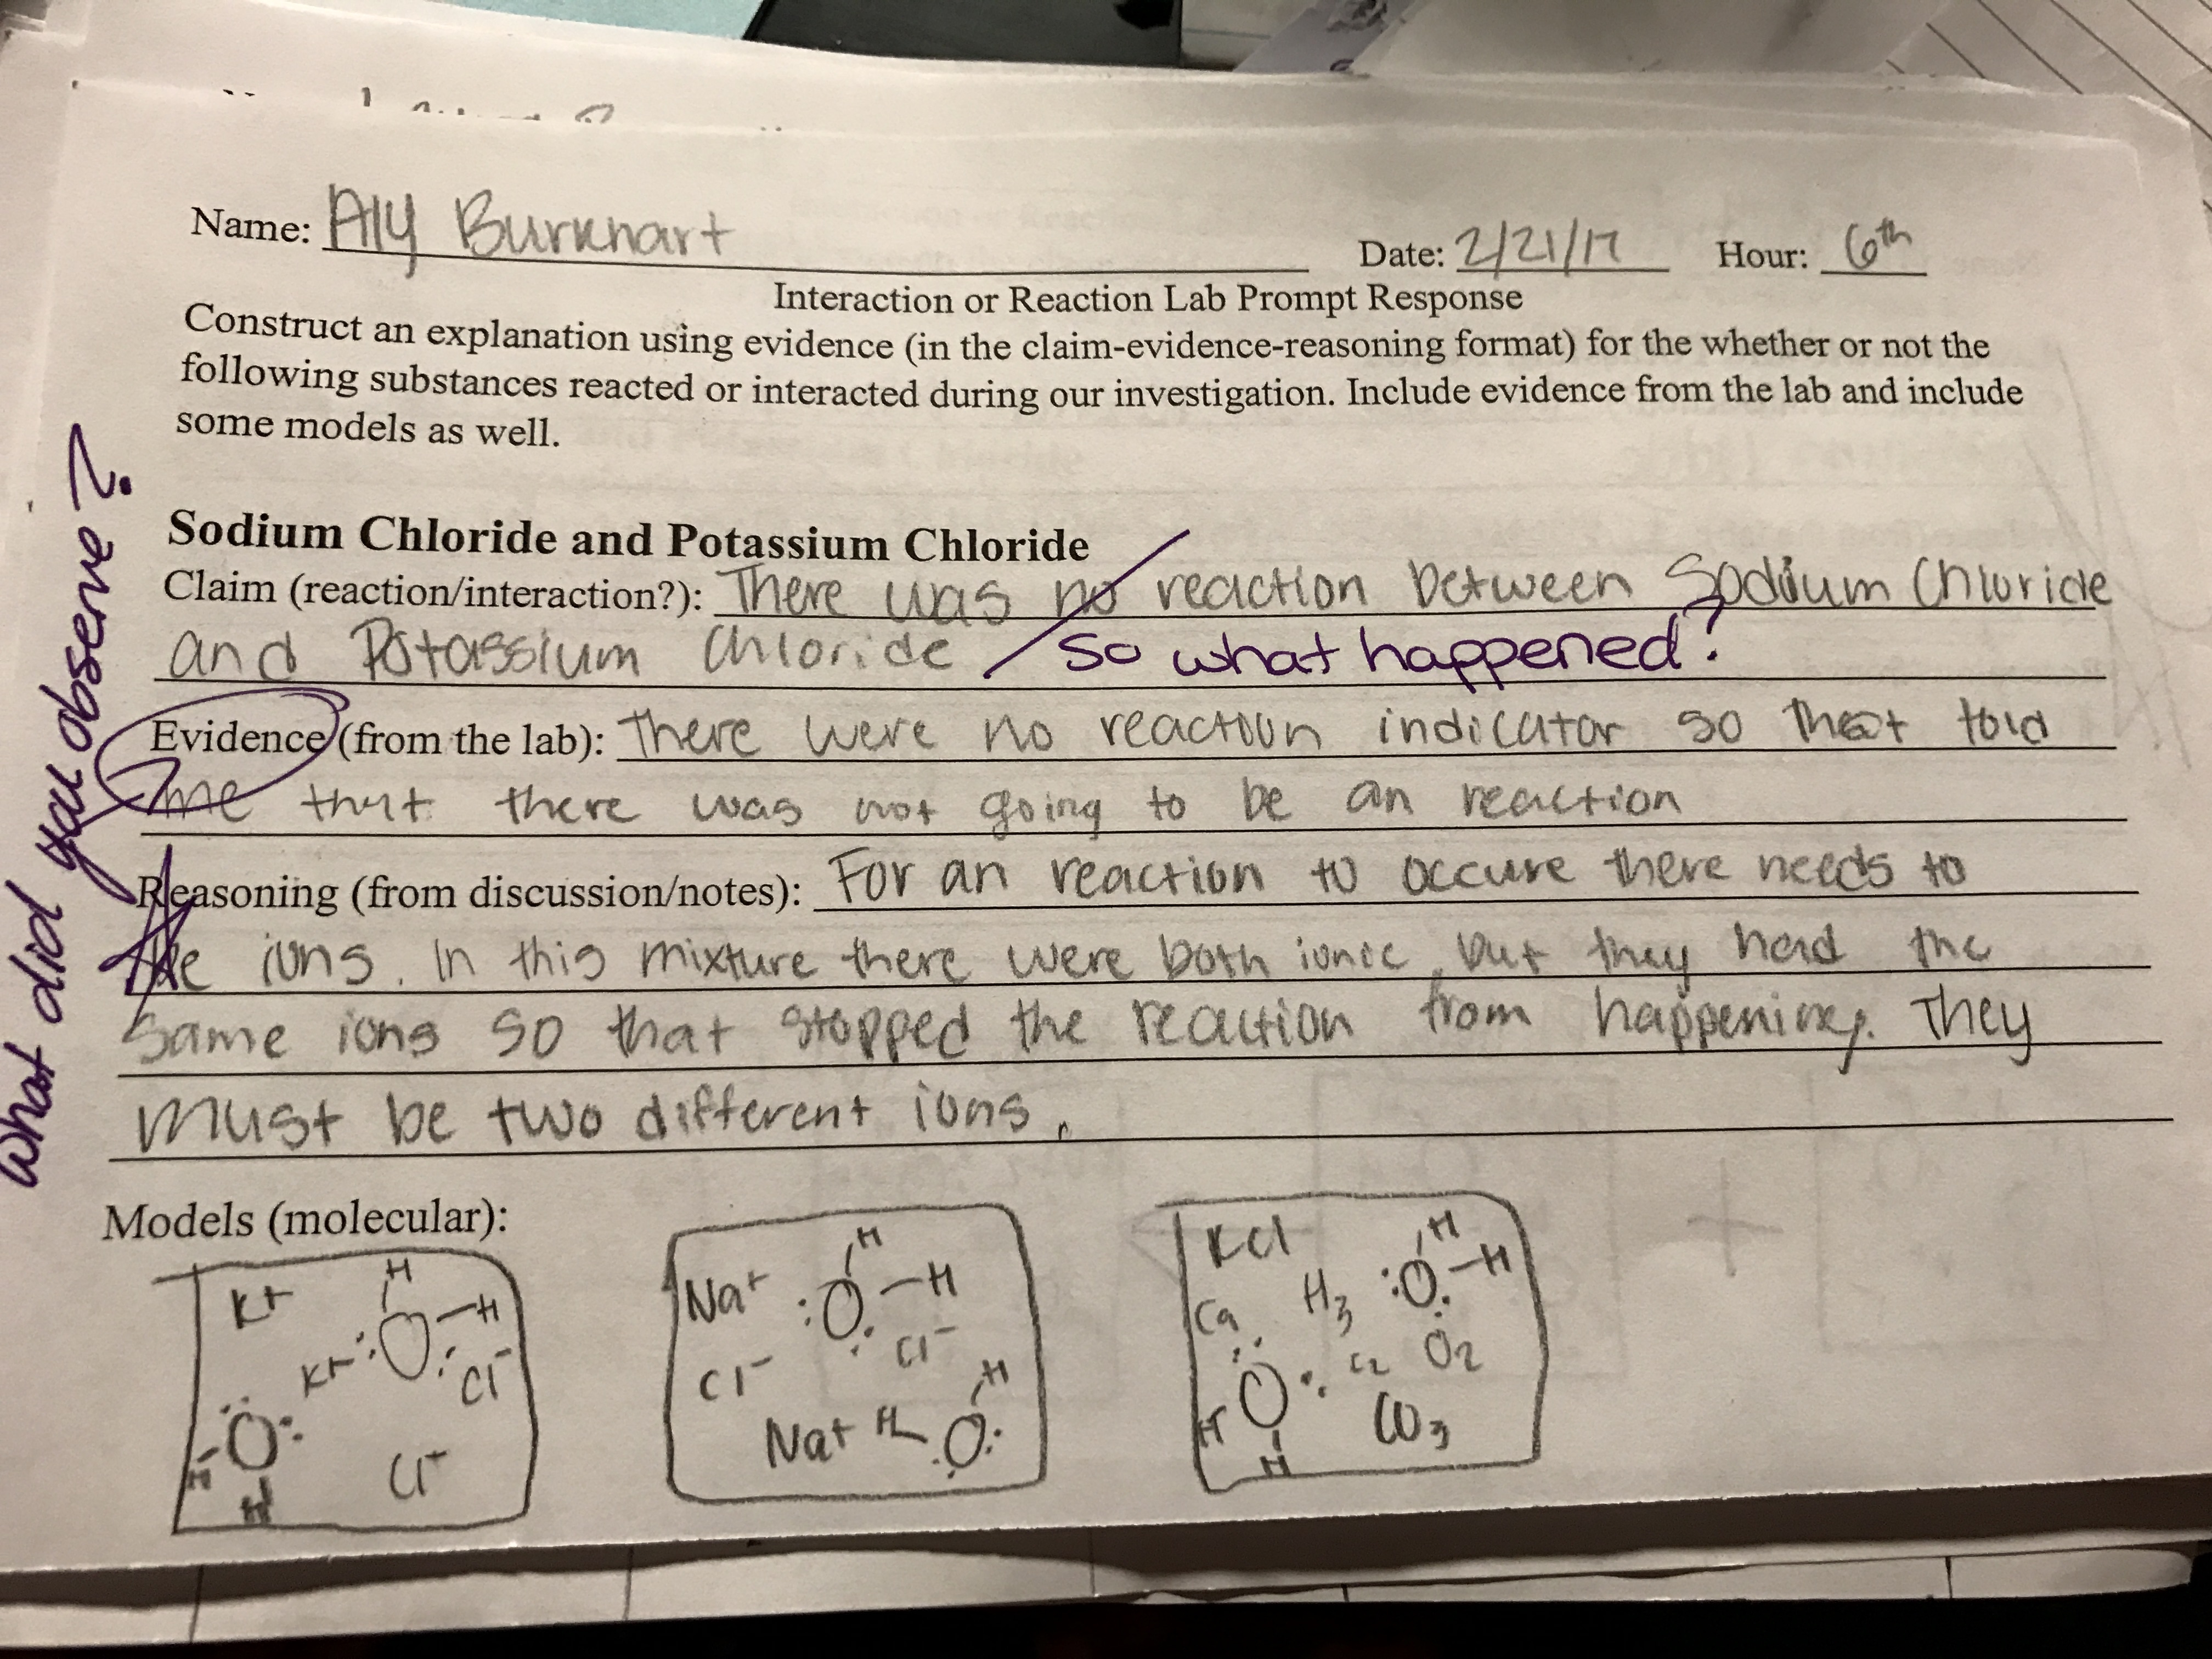 Name: Aly Burkhart Date: 2/21/17 Hour: 6th
Interaction or Reaction Lab Prompt Response
Construct an explanation using evidence (in the claim-evidence-reasoning format) for the whether or not the
following substances reacted or interacted during our investigation. Include evidence from the lab and include
some models as well.
What did you observe?
Sodium Chloride and Potassium Chloride
Claim (reaction/interaction?): There was no reaction between Sodium Chloride
and Potassium Chloride so what happened?
Evidence (from the lab): There were no reaction indicator so that told
me that there was not going to be an reaction
Reasoning (from discussion/notes): For an reaction to occure there needs to
be ions. In this mixture there were both ionic, but they had the
same ions so that stopped the reaction from happening. They
must be two different ions.
Models (molecular):
K+ H O H K+ Cl- O H H Cl+
Na+ H O H Cl- Cl- Na+ H O H
KCl H O H H3 Ca O2 O H H CO3